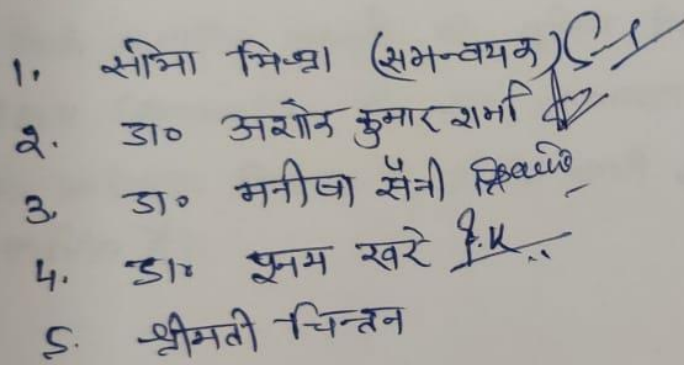 1. सीमा मिश्रा (समन्वयक)
2. डा० अशोक कुमार शर्मा
3. डा० मनीषा सैनी
4. डा० पूनम खरे P.K
5. श्रीमती चिन्तन